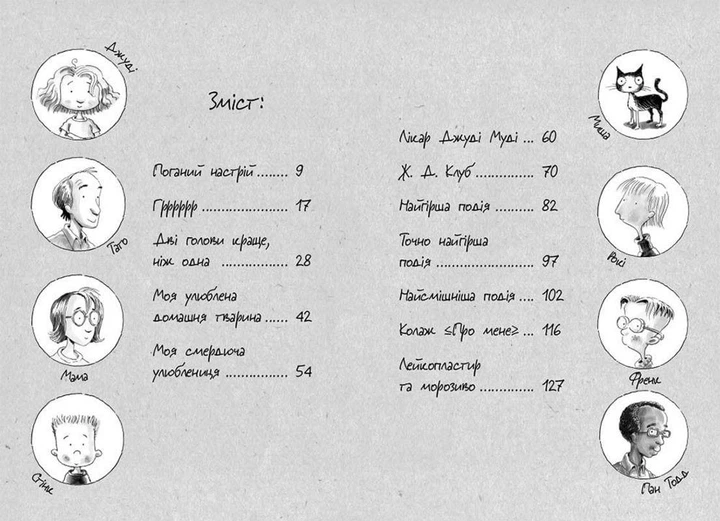 Джуді
Тато
Мама
Стінк
Зміст:
Поганий настрій ........ 9
Грррррр ...................... 17
Дві голови краще,
ніж одна ................. 28
Моя улюблена
домашня тварина ...... 42
Моя смердюча
улюблениця ................ 54
Лікар Джуді Муді ... 60
Ж. Д. Клуб ............... 70
Найгірша подія ......... 82
Точно найгірша
подія ......................... 97
Найсмішніша подія .... 102
Колаж «Про мене» ... 116
Лейкопластир
та морозиво .............. 127
Миша
Рокі
Френк
Пан Тодд